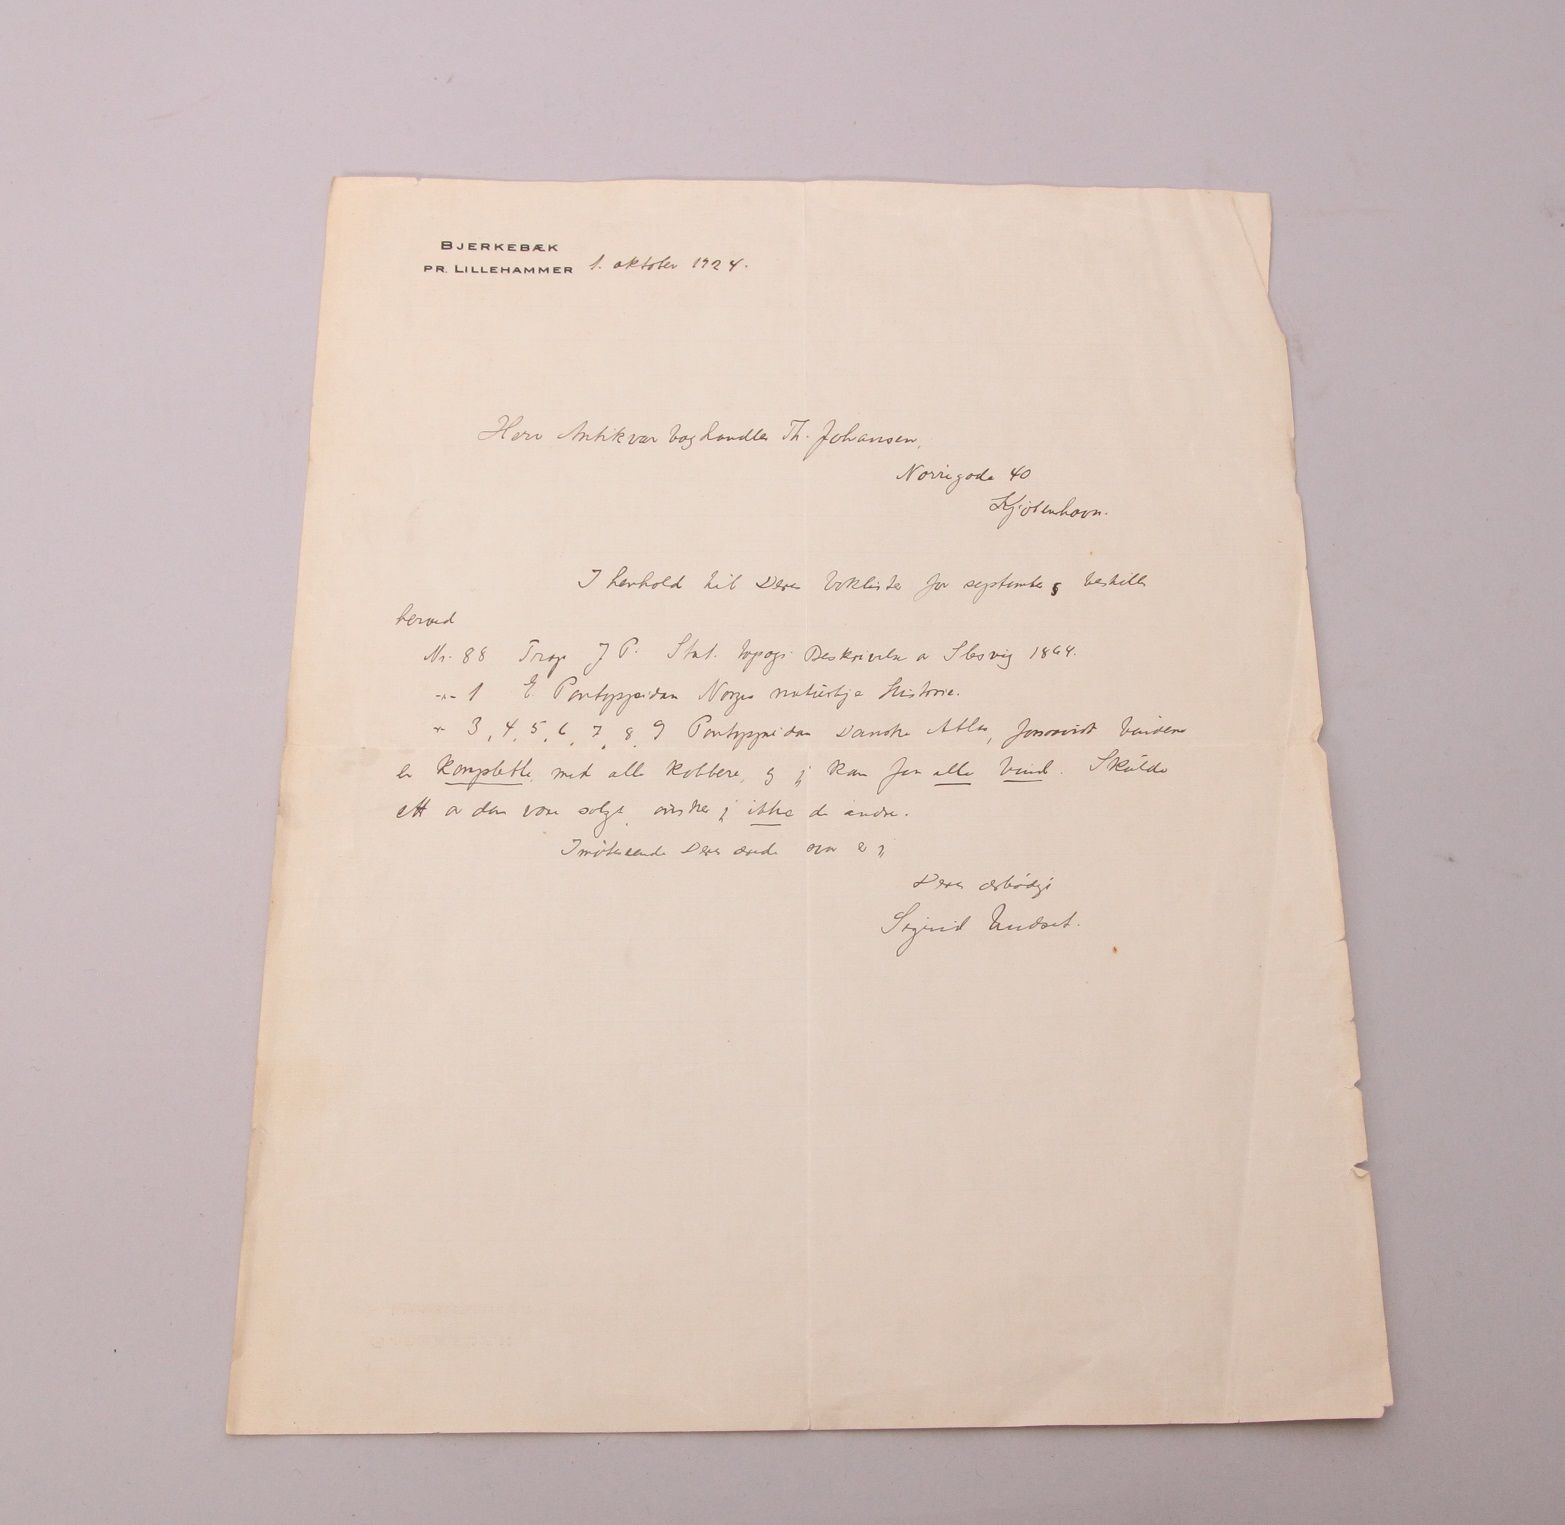 BJERKEBÆK
PR. LILLEHAMMER 1. oktober 1924.
Herr Antikvarboghandler Th. Johansen,
Nørregade 40
Kjøbenhavn.
I henhold til Deres bokliste for september bestilles
herved
Nr. 88 Trap J P. Stat. topogr. Beskrivelse av Slesvig 1864.
-"- 1 E. Pontoppidan Norges naturlige historie.
-"- 3, 4, 5, 6, 7, 8, 9 Pontoppidan Danske Atlas, forsaavidt bindene
er komplette, med alle kobbere, og jeg kan faa alle bind. Skulde
ett av dem være solgt, ønsker jeg ikke de andre.
Imøteseende Deres ærede svar er jeg
Deres ærbødige
Sigrid Undset.